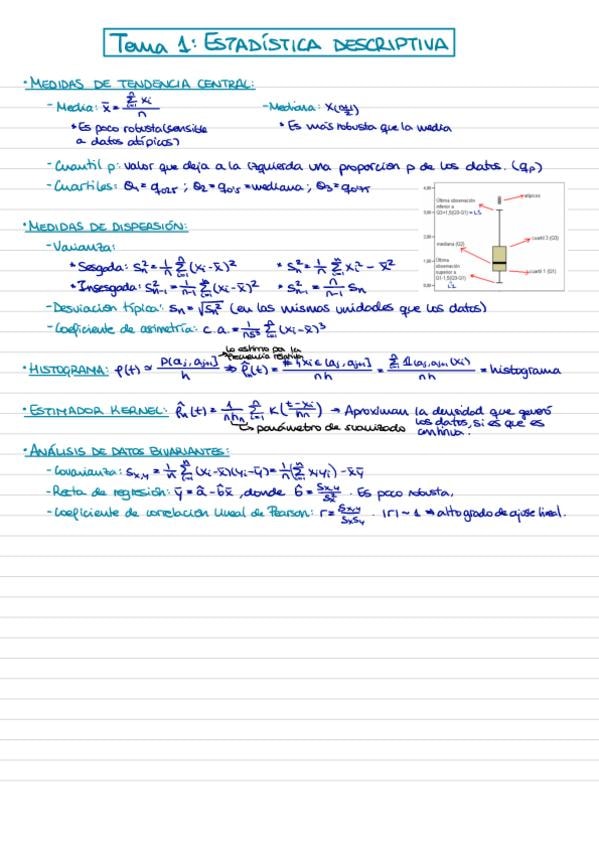 Tema 1: ESTADÍSTICA DESCRIPTIVA
· MEDIDAS DE TENDENCIA CENTRAL:
- Media: x̄ = Σⁿᵢ₌₁ xᵢ / n - Mediana: x((n+1)/2)
* Es poco robusta (sensible a datos atípicos) * Es más robusta que la media
- Cuantil p: valor que deja a la izquierda una proporción p de los datos. (qp)
- Cuartiles: Q₁ = q₀'₂₅ ; Q₂ = q₀'₅ = mediana ; Q₃ = q₀'₇₅
4,00
3,00
2,00
1,00
0,00
Última observación inferior a Q3+1,5(Q3-Q1) = LS
mediana (Q2)
Última observación superior a Q1-1,5(Q3-Q1)
LI
atípicos
cuartil 3 (Q3)
cuartil 1 (Q1)
· MEDIDAS DE DISPERSIÓN:
- Varianza:
* Sesgada: Sₙ² = 1/n Σⁿᵢ₌₁ (xᵢ - x̄)² * Sₙ² = 1/n Σⁿᵢ₌₁ xᵢ² - x̄²
* Insesgada: S²ₙ₋₁ = 1/(n-1) Σⁿᵢ₌₁ (xᵢ - x̄)² * S²ₙ₋₁ = n/(n-1) Sₙ
- Desviación típica: Sₙ = √Sₙ² (en las mismas unidades que los datos)
- Coeficiente de asimetría: c.a. = 1/(nS³) Σⁿᵢ₌₁ (xᵢ - x̄)³
lo estimo por la frecuencia relativa
· HISTOGRAMA: f(t) ≃ P(aⱼ, aⱼ₊₁] / h ⇒ f̂ₙ(t) = #{xᵢ ∈ (aⱼ, aⱼ₊₁] / nh = Σⁿᵢ₌₁ 1(aⱼ, aⱼ₊₁](xᵢ) / nh = histograma
· ESTIMADOR KERNEL: f̂ₙ(t) = 1/(n hₙ) Σⁿᵢ₌₁ K((t - xᵢ)/hₙ) → Aproximan la densidad que generó los datos, si es que es continua.
↳ parámetro de suavizado
· ANÁLISIS DE DATOS BIVARIANTES:
- Covarianza: Sx,y = 1/n Σⁿᵢ₌₁ (xᵢ - x̄)(yᵢ - ȳ) = 1/n (Σⁿᵢ₌₁ xᵢyᵢ) - x̄ȳ
- Recta de regresión: ȳ = â - b̂x̄, donde b̂ = Sx,y / Sx². Es poco robusta.
- Coeficiente de correlación lineal de Pearson: r = Sx,y / SxSy. |r| ~ 1 ⇒ alto grado de ajuste lineal.